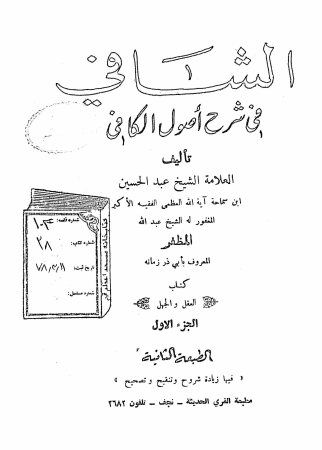 الشافي
في شرح أصول الكافي
تأليف
العلامة الشيخ عبد الحسين
ابن سماحة آية الله العظمى الفقيه الأكبر
المغفور له الشيخ عبد الله
المظفر
المعروف بأبي ذر زمانه
كتاب
العقل والجهل
الجزء الاول
الطبعة الثانية
« فيها زيادة شروح وتنقيح وتصحيح »
مطبعة الغري الحديثة ـ نجف ـ تلفون ٢٦٨٢
كتابخانه مسجد اعظم قم
شماره قفسه: ۱۰۴
شماره کتاب: ۲۸
تاریخ ثبت:
شماره مسلسل: